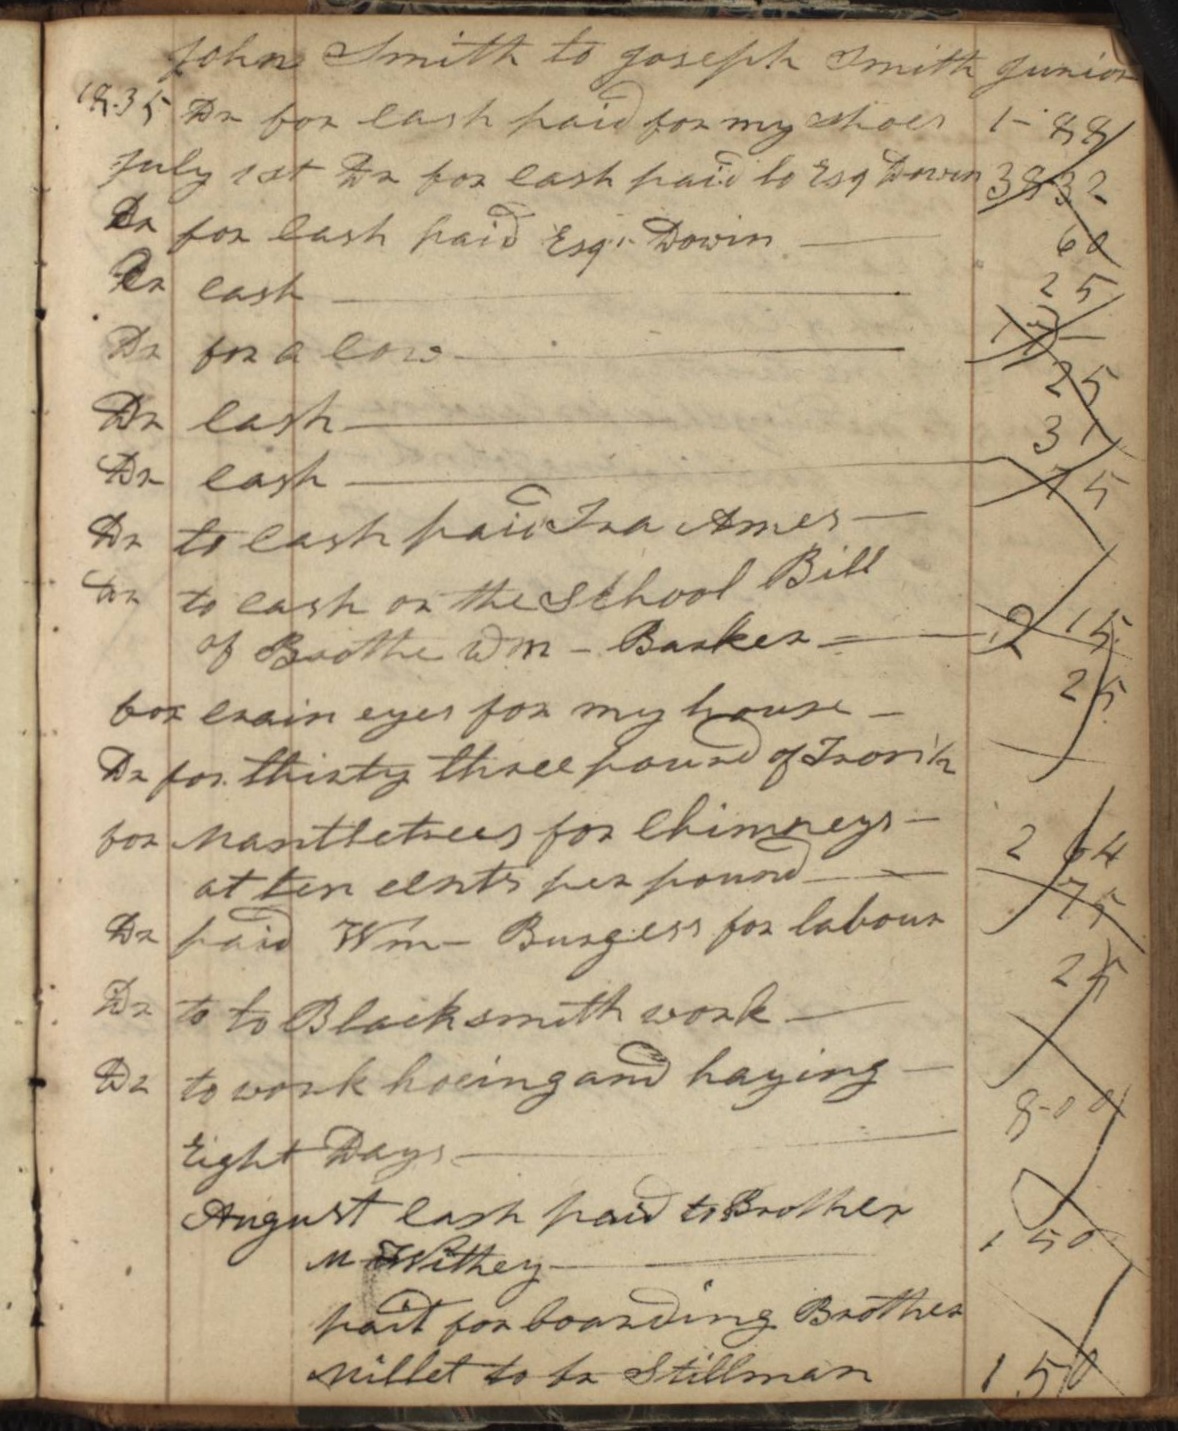 John Smith to Joseph Smith Junior
1835 Dr for cash paid for my shoes 1-88
July 1st Dr for cash paid to Esq Dowin 38 32
Dr for cash paid Esqr Dowin 60
Dr cash 25
Dr for a cow
Dr cash 25
Dr cash 31
Dr to cash paid Ira Ames 75
Dr to cash on the School Bill
of Brothe Wm Barker 2 15
for crain eyes for my house 25
Dr for thirty three pound of Iron
for Mantletrees for Chimneys
at ten cents per pound 2 64
Dr paid Wm Burgess for labour 75
Dr to to Blacksmith work 25
Dr to work hoeing and haying
Eight Days 8-00
August cash paid to Brother
M Withey 1 50
paid for boarding Brother
Millet to br Stillman 1 50